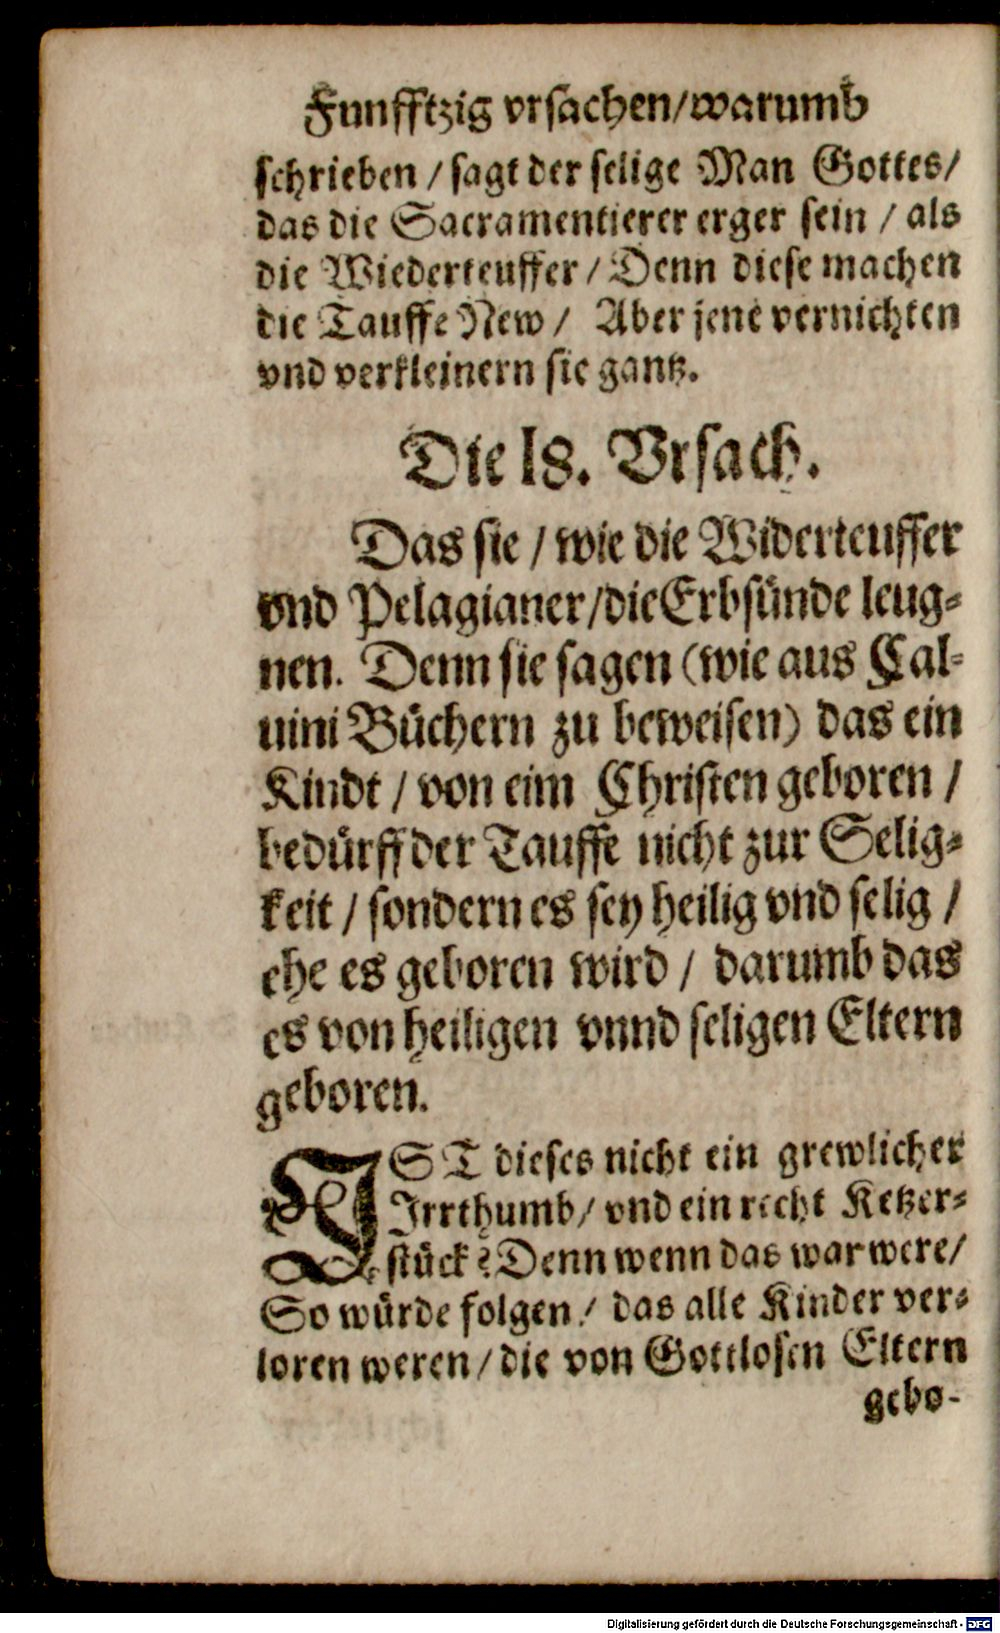 Funfftzig vrsachen/warumb
schrieben / sagt der selige Man Gottes/
das die Sacramentierer erger sein / als
die Wiederteuffer / Denn diese machen
die Tauffe New / Aber jene vernichten
vnd verkleinern sie gantz.
Die 18. Vrsach.
Das sie / wie die Widerteuffer
vnd Pelagianer/die Erbsünde leug-
nen. Denn sie sagen (wie aus Cal-
uini Büchern zu beweisen) das ein
Kindt / von eim Christen geboren /
bedürff der Tauffe nicht zur Selig-
keit / sondern es sey heilig vnd selig /
ehe es geboren wird / darumb das
es von heiligen vnnd seligen Eltern
geboren.
IST dieses nicht ein grewlicher
Irrthumb/ vnd ein recht Ketzer-
stück? Denn wenn das war were/
So würde folgen / das alle Kinder ver-
loren weren / die von Gottlosen Eltern
gebo-
Digitalisierung gefördert durch die Deutsche Forschungsgemeinschaft - DFG